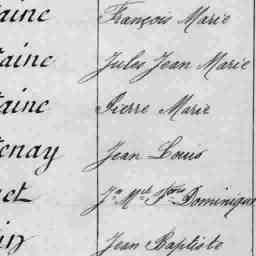 aine François Marie
aine Jules Jean Marie
aine Pierre Marie
enay Jean Louis
et Jn Mel Fois Dominique
in Jean Baptiste